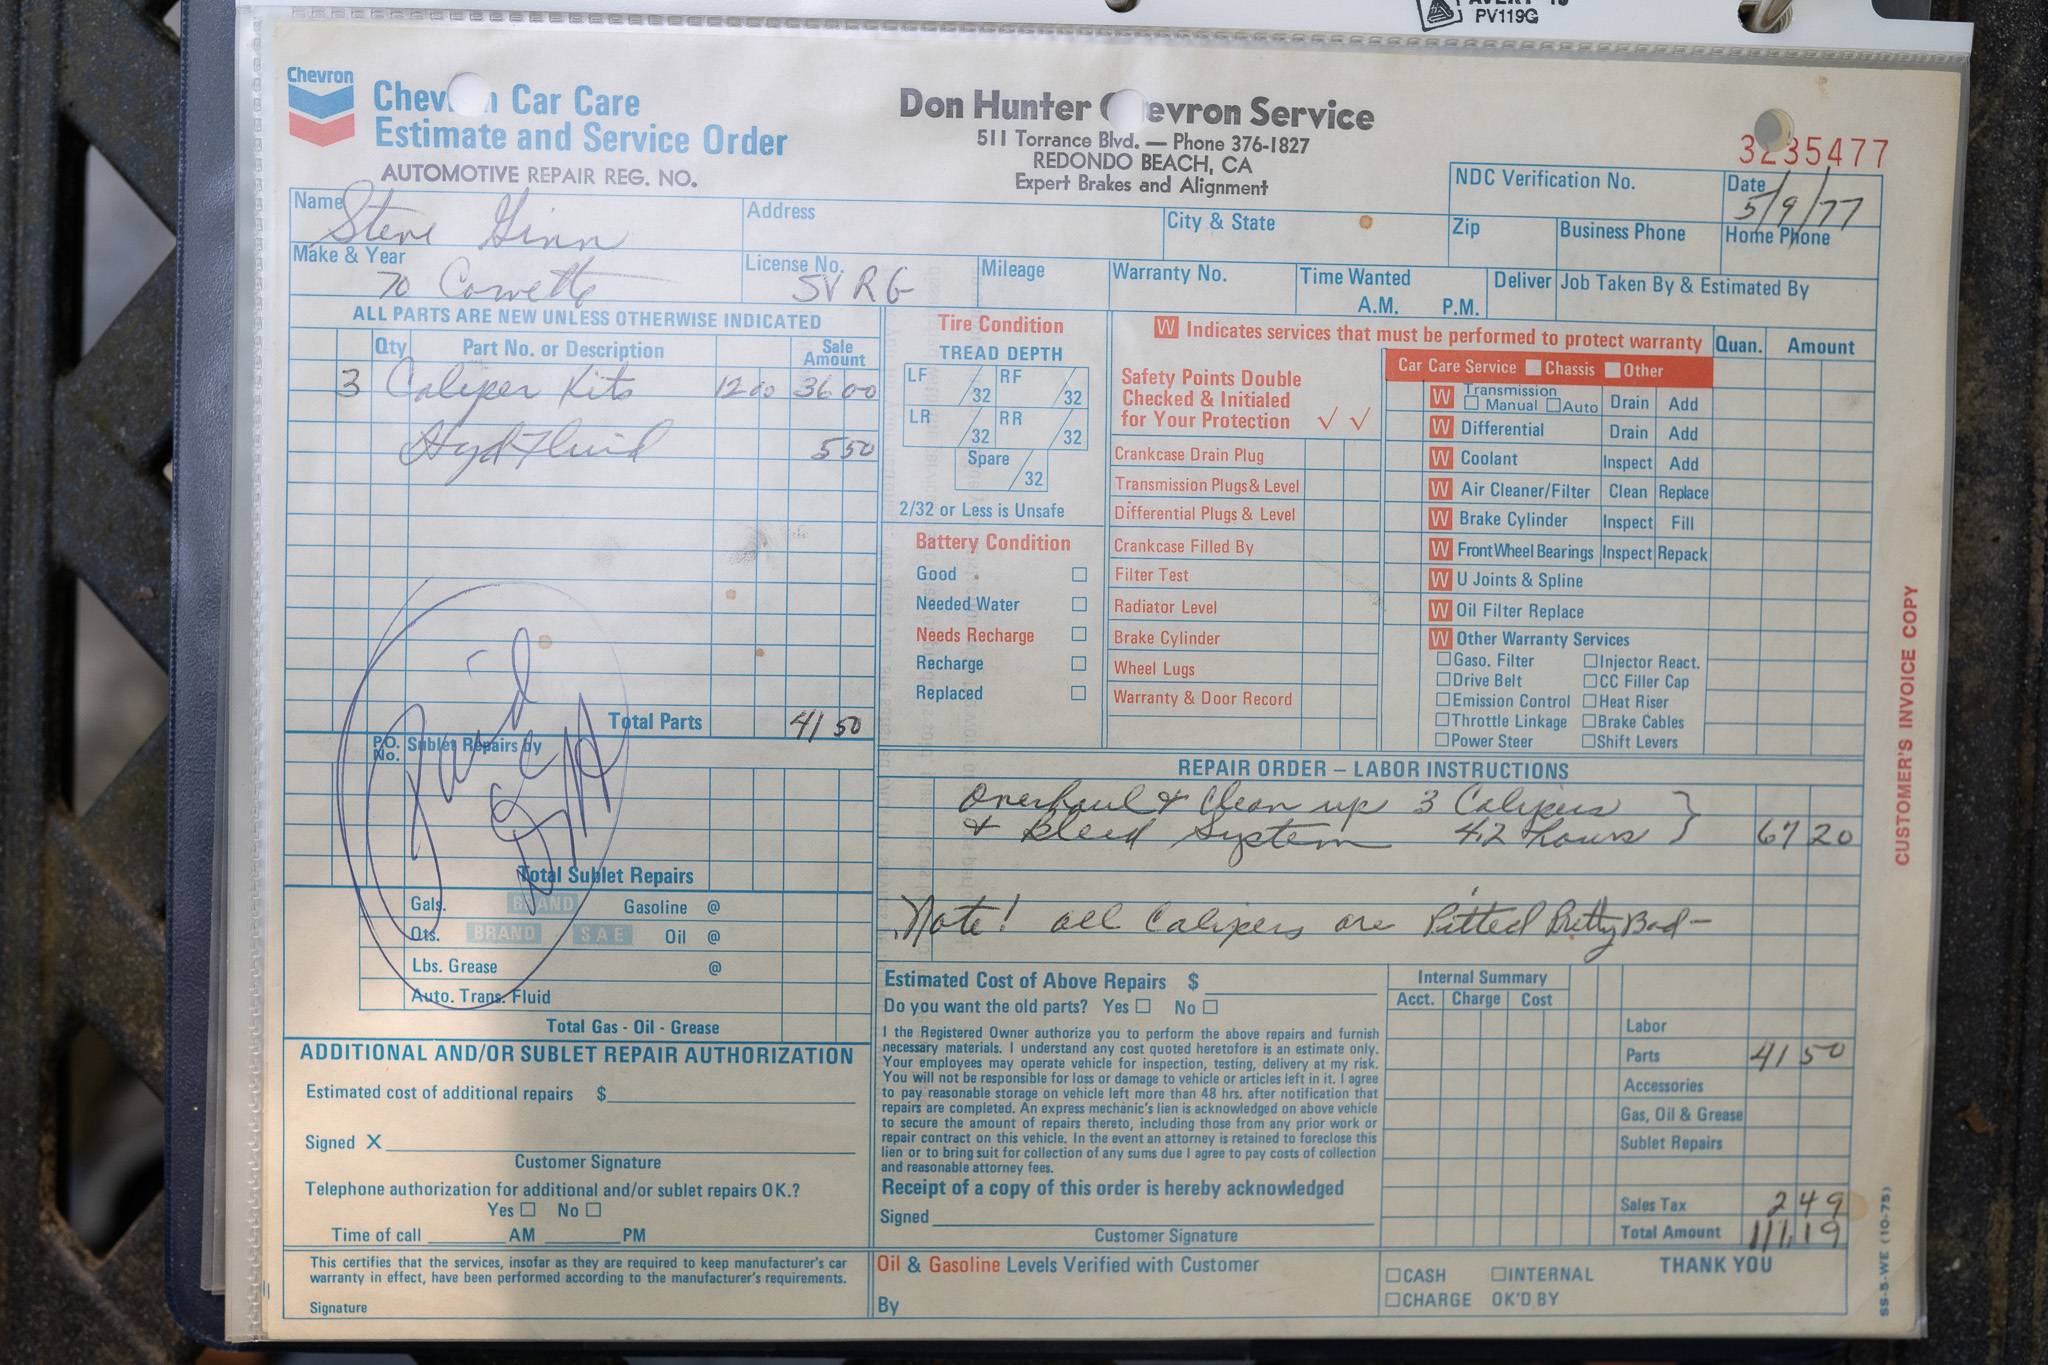 AVERY
PV119G
Chevron
Chev n Car Care
Estimate and Service Order
AUTOMOTIVE REPAIR REG. NO.
Don Hunter C evron Service
511 Torrance Blvd. — Phone 376-1827
REDONDO BEACH, CA
Expert Brakes and Alignment
3235477
NDC Verification No.
Date
5/9/77
Name
Steve Ginn
Address
City & State
Zip
Business Phone
Home Phone
Make & Year
70 Corvette
License No.
5VRG
Mileage
Warranty No.
Time Wanted
A.M. P.M.
Deliver
Job Taken By & Estimated By
ALL PARTS ARE NEW UNLESS OTHERWISE INDICATED
Qty Part No. or Description Sale Amount
3 Caliper Kits 12 00 36 00
Hyd Fluid 5 50
Total Parts 41 50
P.O. No. Sublet Repairs by
Paid
Total Sublet Repairs
Gals. BRAND Gasoline @
Qts. BRAND SAE Oil @
Lbs. Grease @
Auto. Trans. Fluid
Total Gas - Oil - Grease
ADDITIONAL AND/OR SUBLET REPAIR AUTHORIZATION
Estimated cost of additional repairs $
Signed X
Customer Signature
Telephone authorization for additional and/or sublet repairs OK.?
Yes No
Time of call AM PM
This certifies that the services, insofar as they are required to keep manufacturer's car
warranty in effect, have been performed according to the manufacturer's requirements.
Signature
Tire Condition
TREAD DEPTH
LF /32 RF /32
LR /32 RR /32
Spare /32
2/32 or Less is Unsafe
Battery Condition
Good
Needed Water
Needs Recharge
Recharge
Replaced
W Indicates services that must be performed to protect warranty
Quan. Amount
Safety Points Double
Checked & Initialed
for Your Protection ✓ ✓
Crankcase Drain Plug
Transmission Plugs & Level
Differential Plugs & Level
Crankcase Filled By
Filter Test
Radiator Level
Brake Cylinder
Wheel Lugs
Warranty & Door Record
Car Care Service Chassis Other
W Transmission Manual Auto Drain Add
W Differential Drain Add
W Coolant Inspect Add
W Air Cleaner/Filter Clean Replace
W Brake Cylinder Inspect Fill
W Front Wheel Bearings Inspect Repack
W U Joints & Spline
W Oil Filter Replace
W Other Warranty Services
Gaso. Filter Injector React.
Drive Belt CC Filler Cap
Emission Control Heat Riser
Throttle Linkage Brake Cables
Power Steer Shift Levers
REPAIR ORDER – LABOR INSTRUCTIONS
Overhaul & Clean up 3 Calipers
& Bleed System 4.2 hours 67 20
Note! all Calipers are Pitted Pretty Bad –
Estimated Cost of Above Repairs $
Do you want the old parts? Yes No
I the Registered Owner authorize you to perform the above repairs and furnish
necessary materials. I understand any cost quoted heretofore is an estimate only.
Your employees may operate vehicle for inspection, testing, delivery at my risk.
You will not be responsible for loss or damage to vehicle or articles left in it. I agree
to pay reasonable storage on vehicle left more than 48 hrs. after notification that
repairs are completed. An express mechanic's lien is acknowledged on above vehicle
to secure the amount of repairs thereto, including those from any prior work or
repair contract on this vehicle. In the event an attorney is retained to foreclose this
lien or to bring suit for collection of any sums due I agree to pay costs of collection
and reasonable attorney fees.
Receipt of a copy of this order is hereby acknowledged
Signed
Customer Signature
Internal Summary
Acct. Charge Cost
Labor
Parts 41 50
Accessories
Gas, Oil & Grease
Sublet Repairs
Sales Tax 2 49
Total Amount 111.19
Oil & Gasoline Levels Verified with Customer
By
CASH INTERNAL
CHARGE OK'D BY
THANK YOU
CUSTOMER'S INVOICE COPY
SS-5-WE (10-75)